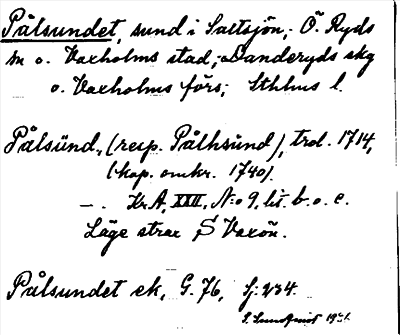 Pålsundet, sund i Saltsjön, Ö. Ryds
sn o. Vaxholms stad, Danderyds skg
o. Vaxholms förs; Sthlms l.
Pålsünd, (resp. Pålhsünd), trol. 1714,
(kop. omkr. 1740).
–. Kr.A, XXII, N:o 9, lit. b. o. c.
Läge strax S Vaxön.
Pålsundet ek, G. 76, Sj: 234.